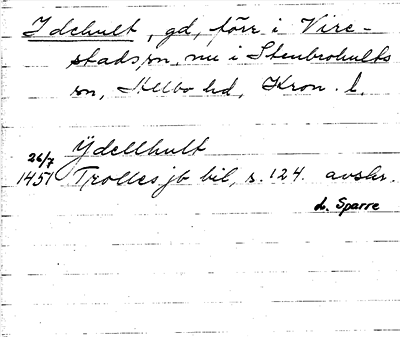 Idehult, gd, förr i Vire-
stads sn, nu i Stenbrohults
sn, Allbo hd, Kron. l.
Ydellhult
26/7
1451 Trolles jb bil, s. 124. avskr.
L. Sparre